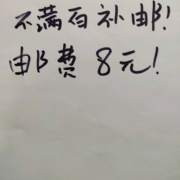 不满百补邮!
邮费8元!